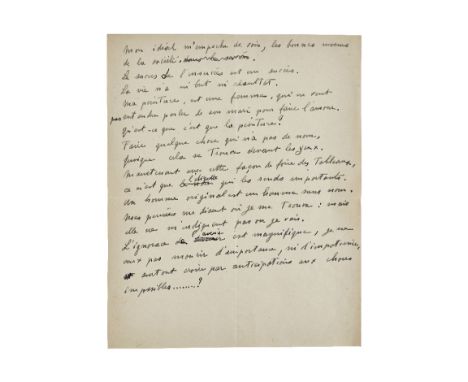 Mon idéal m'importe de soin, les bonnes moeurs
de la société.
Le succès de l'insuccès est un succès.
La vie n'a ni but ni résultat.
Ma peinture, est une femme, qui ne veut
pas entendre parler de son mari pour faire l'amour.
Qu'est-ce que c'est que la peinture?
Faire quelque chose qui n'a pas de nom,
quoique cela se Trouve devant les yeux.
Maintenant avec cette façon de faire des Tableaux,
ce n'est que l'étiquette qui les rends importants.
Un homme original est un homme sans nom.
Nous pensées me disent où je me Trouve: mais
elles ne m'indiquent pas où je vais.
L'ignorance de l'avenir est magnifique, je ne
veux pas mourir d'importance, ni d'impotence,
surtout croire par anticipations aux choses
impossibles........?